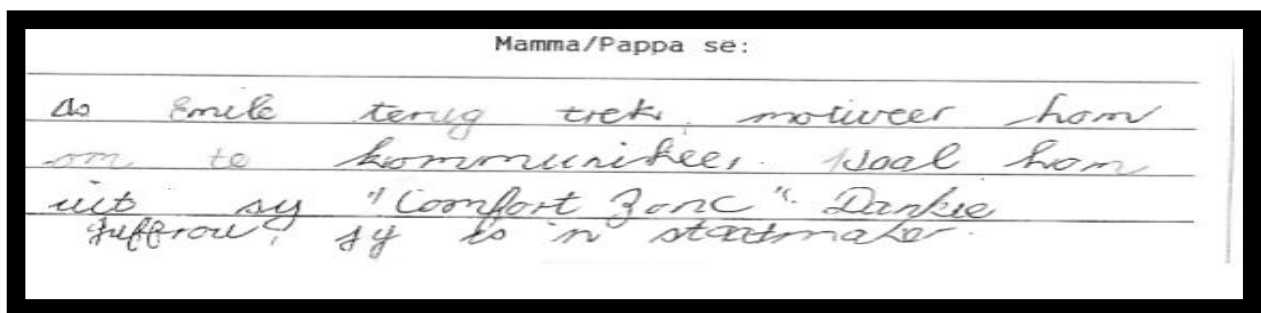 Mamma/Pappa se:
As Emile terug trek, motiveer hom
om te kommunikeer. Haal hom
uit sy "Comfort Zone". Dankie
Juffrou, sy is 'n staatmaker.